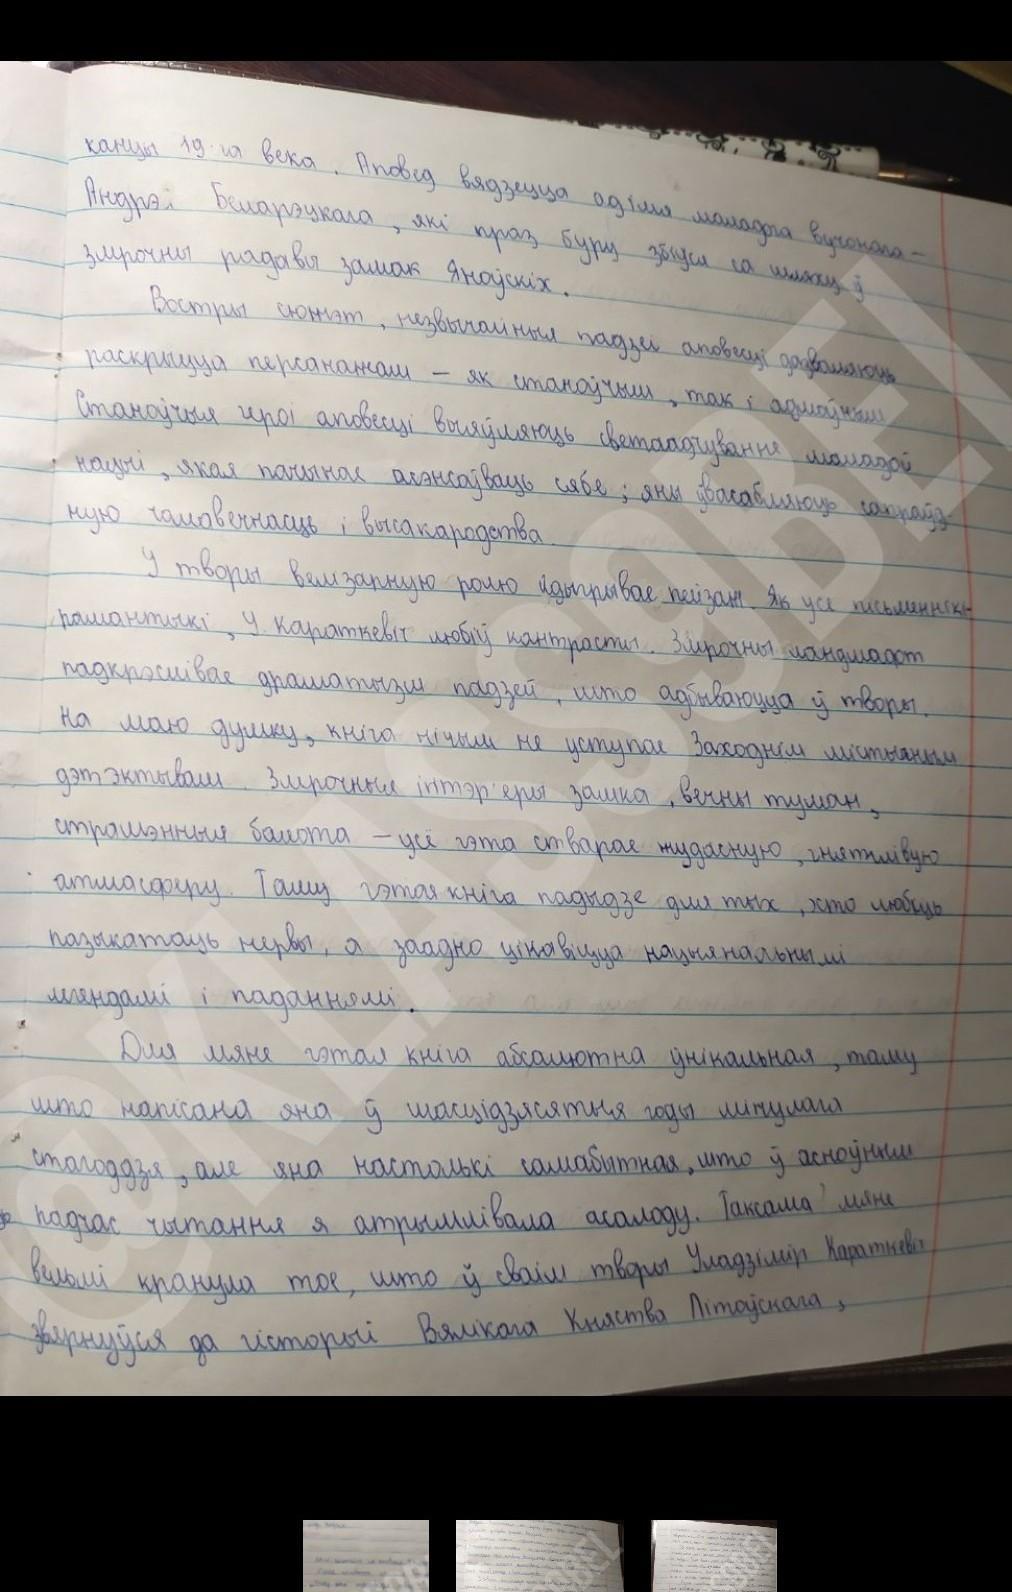 канцы 19-га века. Аповед вядзецца ад імя маладога вучонага –
Андрэя Беларэцкага, які праз буру збіўся са шляху ў
змрочны радавы замак Яноўскіх.
Востры сюжэт, незвычайныя падзеі аповесці дазваляюць
раскрыцца персанажам – як станоўчым, так і адмоўным
Станоўчыя героі аповесці выяўляюць светаадчуванне маладой
нацыі, якая пачынае асэнсоўваць сябе; яны ўвасабляюць сапраўд-
ную чалавечнасць і высакародства.
У творы велізарную ролю адыгрывае пейзаж. Як усе пісьменнікі-
рамантыкі, У Караткевіч любіў кантрасты. Змрочны ландшафт
падкрэслівае драматызм падзей, што адбываюцца ў творы.
На маю думку, кніга нічым не уступае Заходнім містычным
дэтэктывам. Змрочныя інтэр'еры замка, вечны туман,
страшэнныя балота – усё гэта стварае жудасную, гнятлівую
атмасферу. Таму гэтая кніга падыдзе для тых, хто любіць
пазыкатаць нервы, а заадно цікавіцца нацыянальнымі
легендамі і паданнямі.
Для мяне гэтая кніга абсалютна ўнікальная, таму
што напісана яна ў шасцідзясятыя годы мінулага
стагоддзя, але яна настолькі самабытная, што ў асноўным
падчас чытання я атрымлівала асалоду. Таксама мяне
вельмі кранула тое, што ў сваім творы Уладзімір Караткевіч
звярнуўся да гісторыі Вялікага Княства Літоўскага,
@KLASS9BEL